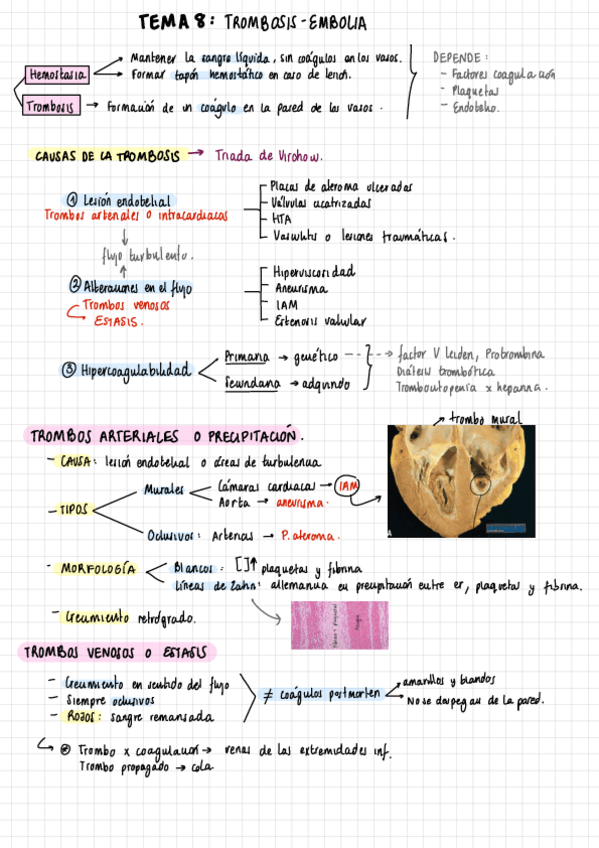 TEMA 8: TROMBOSIS-EMBOLIA
Hemostasia → Mantener la sangre líquida, sin coágulos en los vasos.
→ Formar tapón hemostático en caso de lesión.
Trombosis → Formación de un coágulo en la pared de los vasos.
DEPENDE:
- Factores coagulación
- Plaquetas
- Endotelio.
CAUSAS DE LA TROMBOSIS → Triada de Virchow.
① Lesión endotelial
Trombos arteriales o intracardiacos
- Placas de ateroma ulceradas
- Válvulas cicatrizadas
- HTA
- Vasculitis o lesiones traumáticas.
flujo turbulento.
② Alteraciones en el flujo
Trombos venosos
ESTASIS.
- Hiperviscosidad
- Aneurisma
- IAM
- Estenosis valvular
③ Hipercoagulabilidad
Primaria → genético
Secundaria → adquirido
factor V Leiden, Protrombina
Diátesis trombótica
Trombocitopenia x heparina.
TROMBOS ARTERIALES O PRECIPITACIÓN.
→ trombo mural
- CAUSA: lesión endotelial o áreas de turbulencia
- TIPOS
Murales
Cámaras cardiacas → IAM
Aorta → aneurisma.
Oclusivos: Arterias → P. ateroma.
A
- MORFOLOGÍA
Blancos: []↑ plaquetas y fibrina
Líneas de Zahn: alternancia en precipitación entre er, plaquetas y fibrina.
- Crecimiento retrógrado.
TROMBOS VENOSOS O ESTASIS
- Crecimiento en sentido del flujo
- Siempre oclusivos
- ROJOS: sangre remansada
≠ coágulos postmorten
amarillos y blandos
No se despegan de la pared.
Trombo x coagulación → venas de las extremidades inf.
Trombo propagado → cola